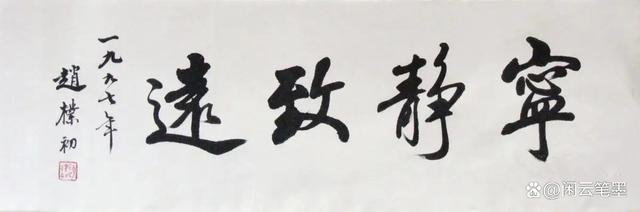 寧靜致遠
一九九七年
趙樸初
闲云笔墨